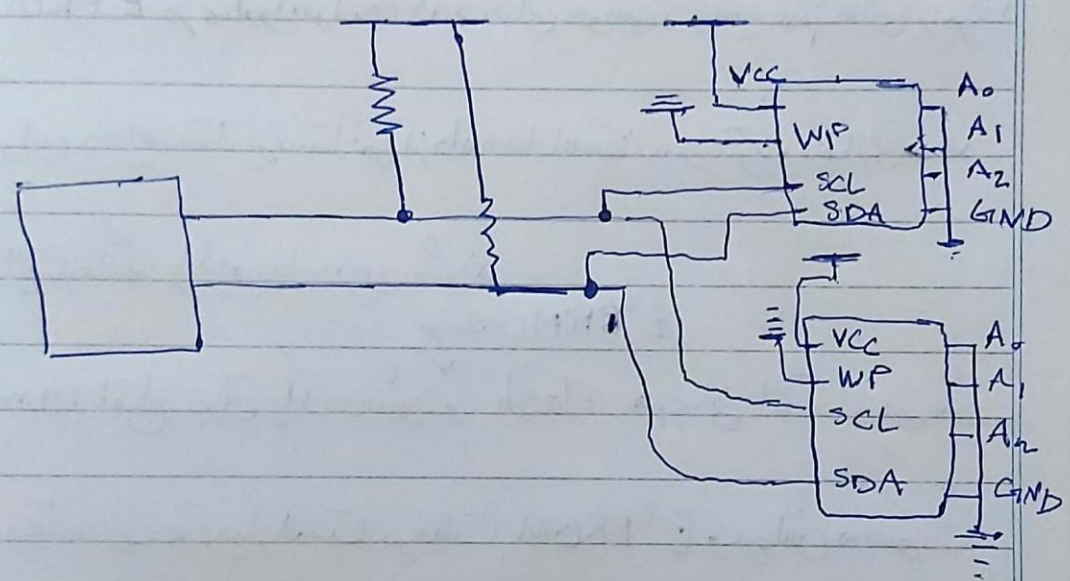 VCC
WP
SCL
SDA
A0
A1
A2
GND
VCC
WP
SCL
SDA
A0
A1
A2
GND